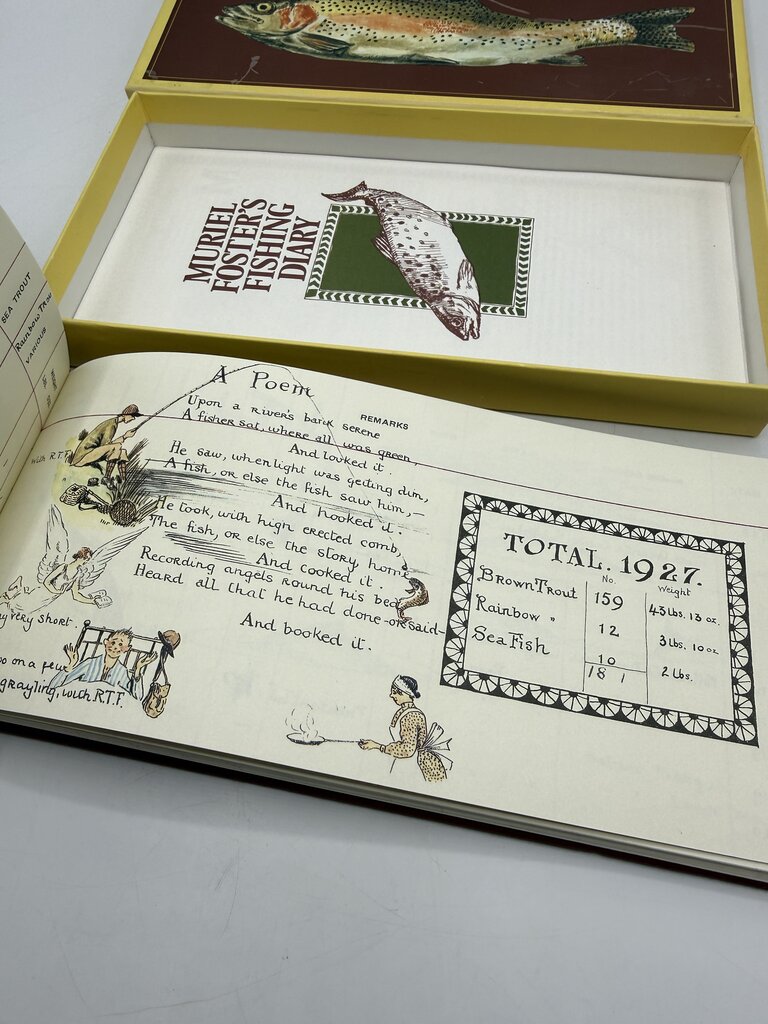 MURIEL
FOSTER'S
FISHING
DIARY
SEA TROUT
Rainbow Trou
VARIOUS
A Poem
REMARKS
Upon a river's bank serene
A fisher sat, where all was green,
And looked it.
He saw, when light was getting dim,
A fish, or else the fish saw him,—
And hooked it.
He took, with high erected comb,
The fish, or else the story home
And cooked it.
Recording angels round his bed
Heard all that he had done - or said -
And booked it.
with R.T.F.
y very short.
oo on a
grayling, with R.T.F.
TOTAL. 1927.
No. Weight
Brown Trout 159 43 lbs. 13 oz.
Rainbow " 12 3 lbs. 10 oz
Sea Fish 10 2 lbs.
181